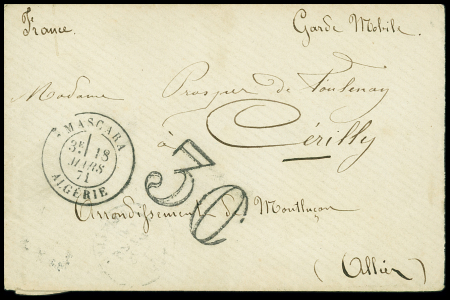 France. Garde Mobile.
Madame Prosper de Toulenay
à Cérilly
MASCARA
3E 18
MARS
71
ALGÉRIE
30
Arrondissement de Montluçon
(Allier)